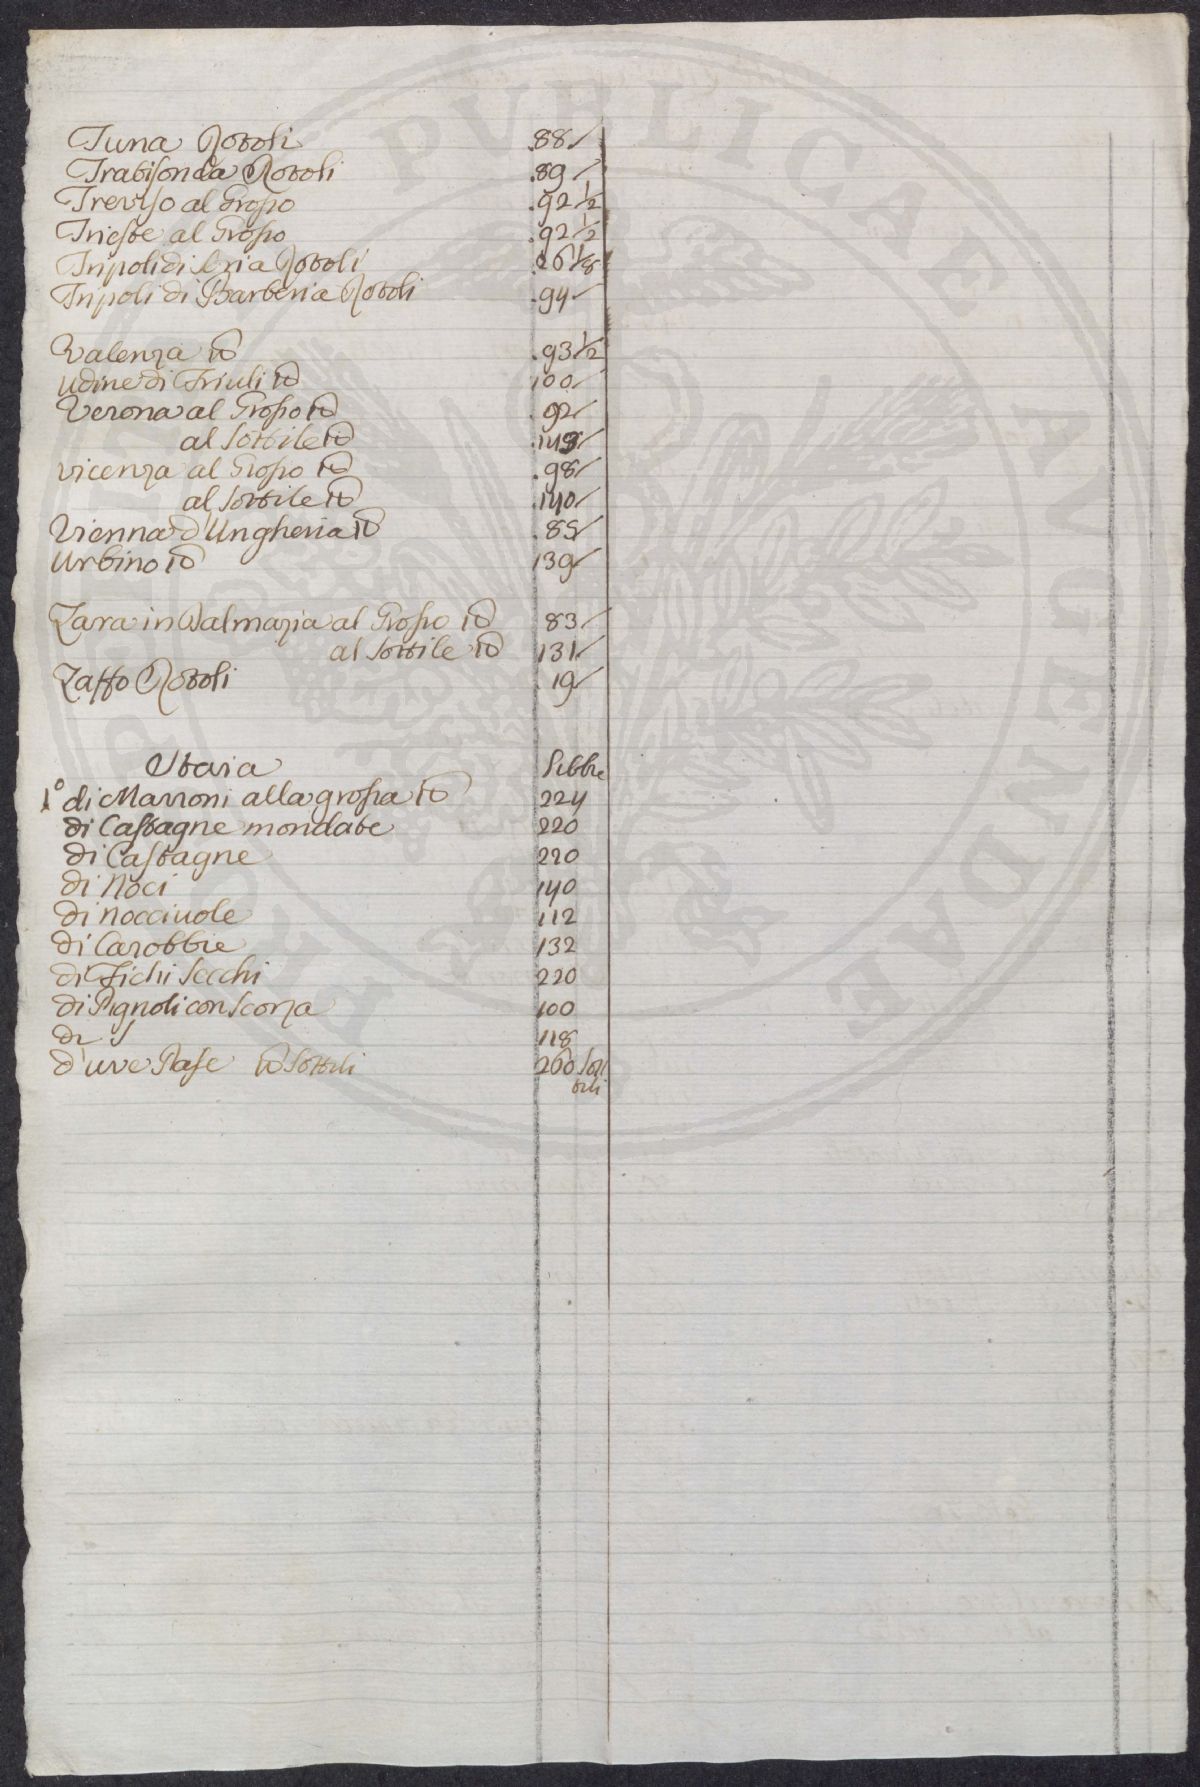 Tuna Rotoli .88
Trabisonda Rotoli .89
Treviso al Grosso .92 1/2
Trieste al Grosso .92 1/2
Tripoli di Soria Rotoli .26 1/8
Tripoli di Barberia Rotoli .94
Valenza lb .93 1/2
Udine di Friuli lb 100
Verona al Grosso lb .92
al sottile lb .149
vicenza al Grosso lb .98
al sottile lb .140
Vienna d'Ungheria lb .85
Urbino lb 139
Zara in Dalmazia al Grosso lb 83
al sottile lb 131
Zaffo Rotoli 19
Staia Libbre
1° di Marroni alla grossa lb 224
di Castagne mondate 220
di Castagne 220
di Noci 140
di nocciuole 112
di Carobbie 132
di Fichi secchi 220
di Pignoli con scorza 100
di S 118
d'uve Passe lb sottili 260 sot
tili
PUBLICAE AUGENDAE